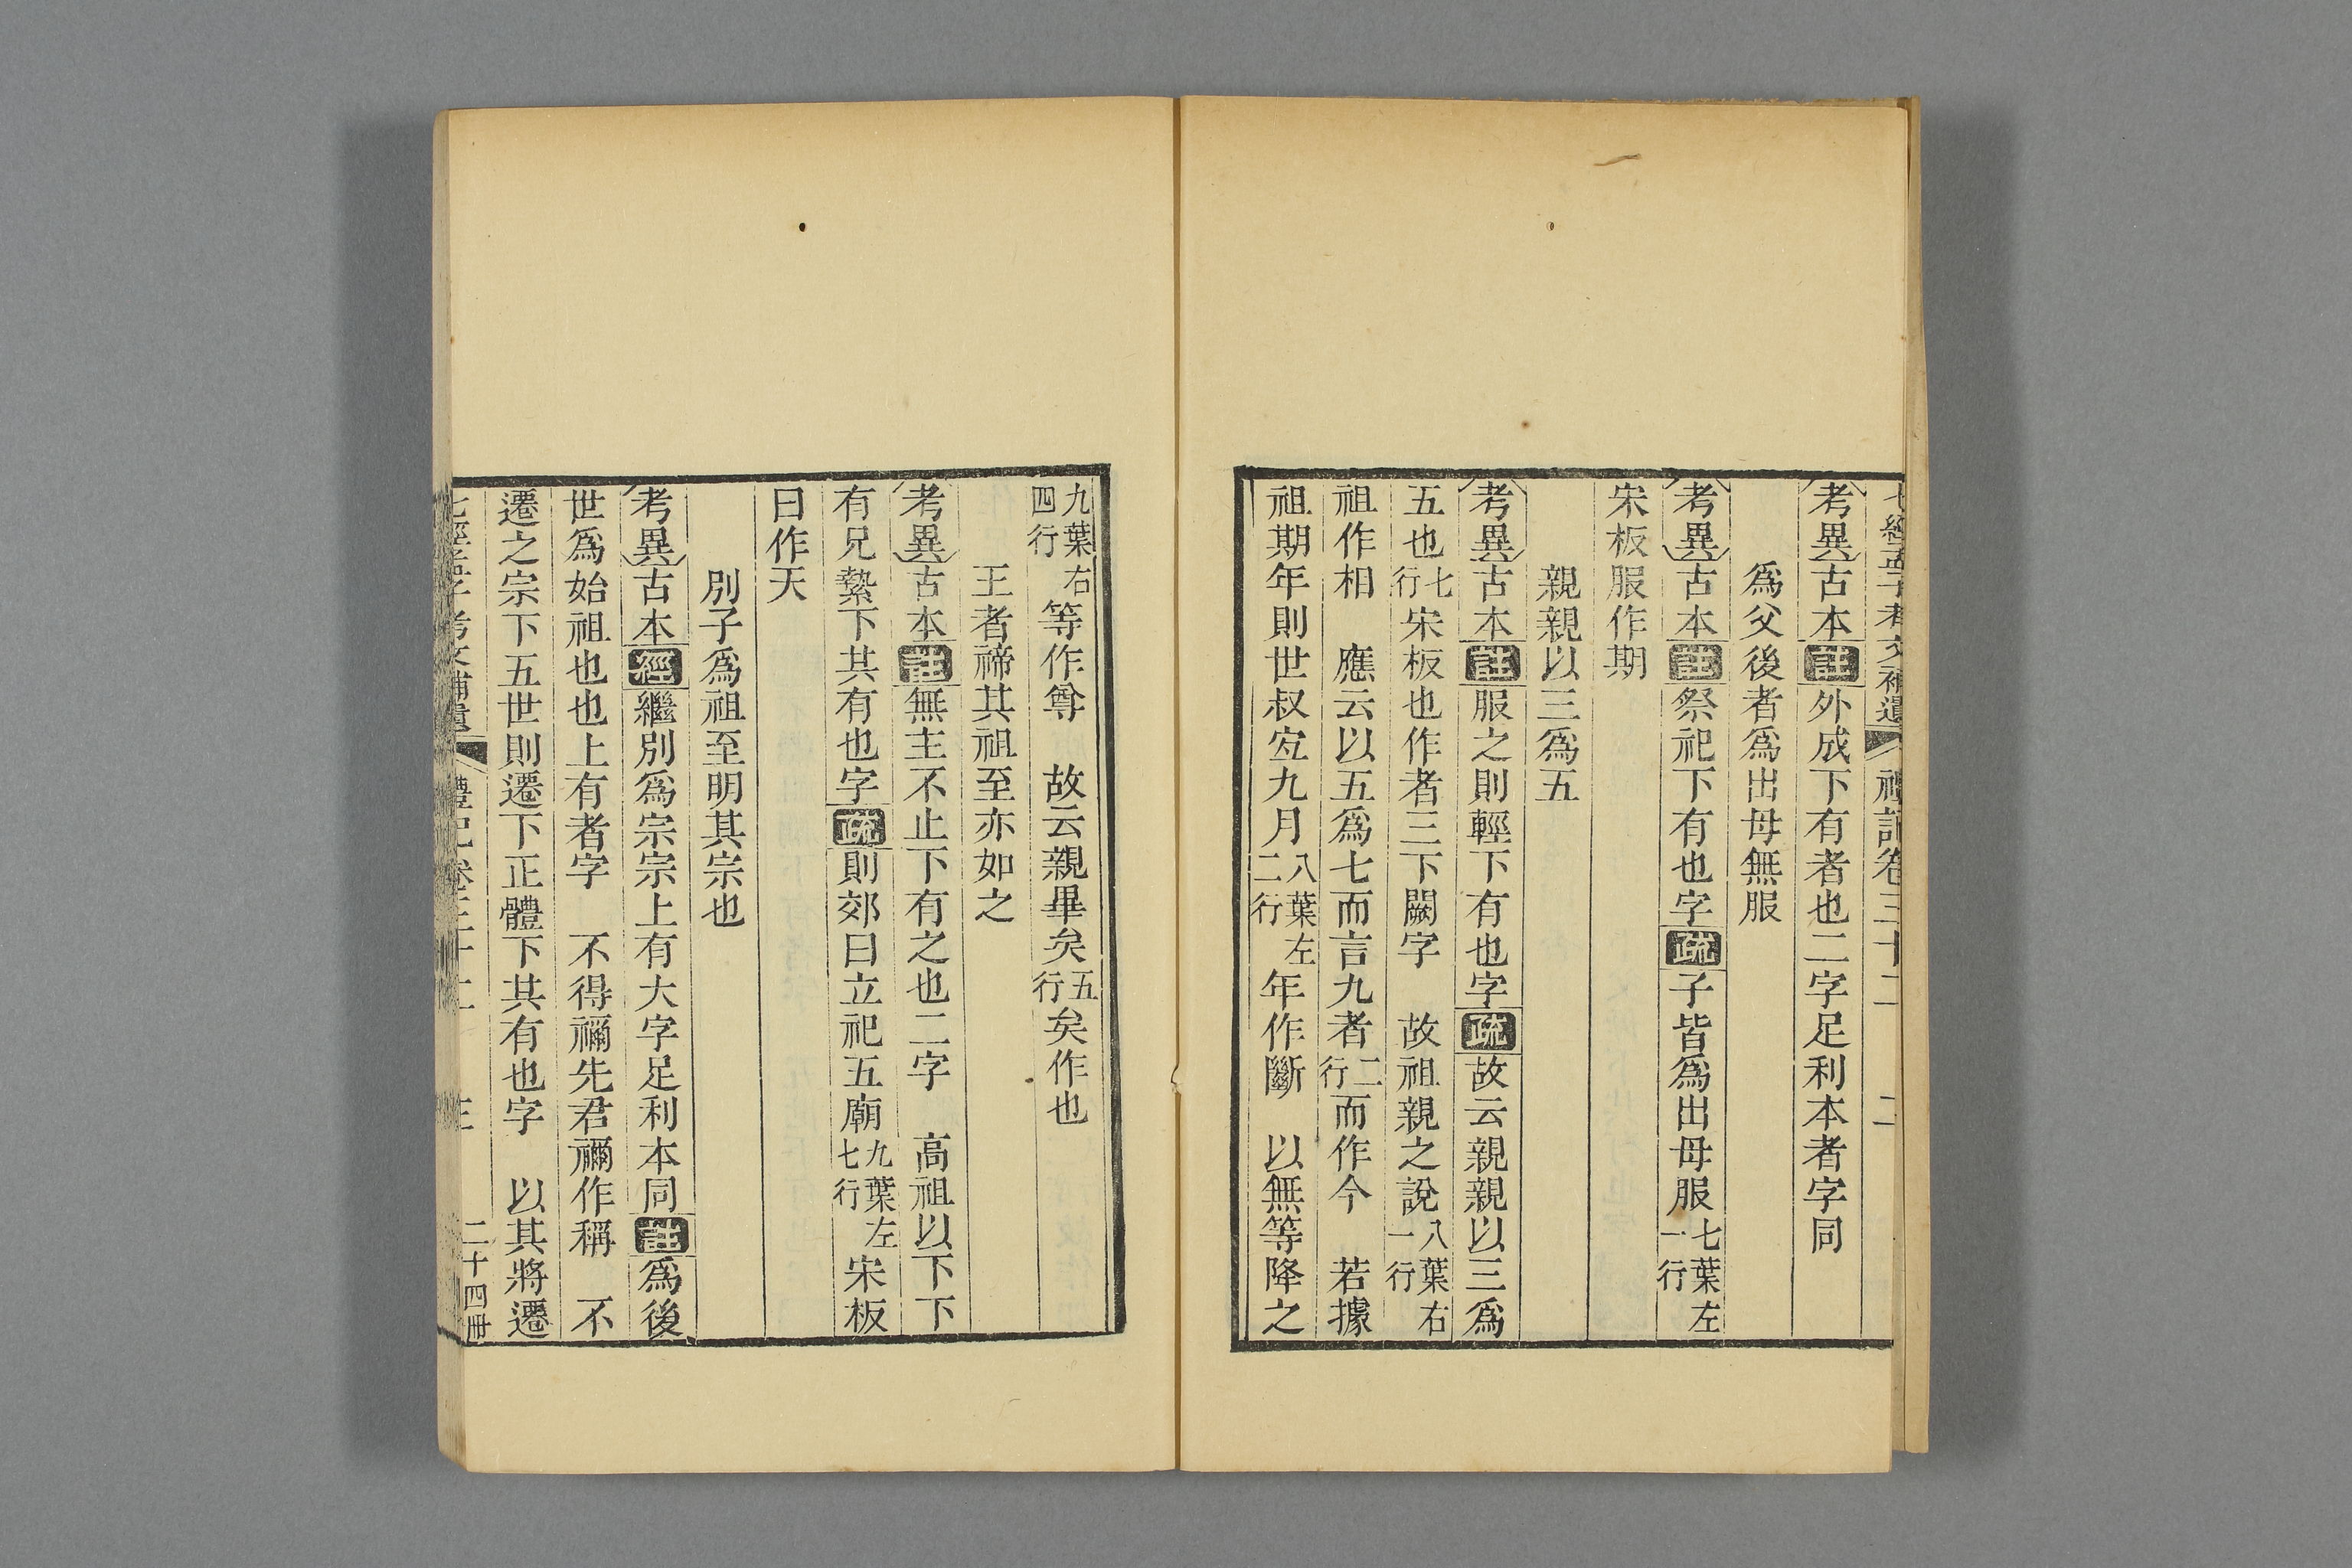 七經孟子考文補遺 禮記卷三十二 二
考異 古本 註 外成下有者也二字足利本者字同
爲父後者爲出母無服
考異 古本 註 祭祀下有也字 疏 子皆爲出母服 七葉左一行
宋板服作期
親親以三爲五
考異 古本 註 服之則輕下有也字 疏 故云親親以三爲
五也 七行 宋板也作者三下闕字 故祖親之說 八葉右一行
祖作相 應云以五爲七而言九者 二行 而作今 若據
祖期年則世叔宐九月 八葉左二行 年作斷 以無等降之
九葉右四行 等作尊 故云親畢矣 五行 矣作也
王者禘其祖至亦如之
考異 古本 註 無主不止下有之也二字 高祖以下下
有兄縶下其有也字 疏 則郊曰立祀五廟 九葉左七行 宋板
曰作天
別子爲祖至明其宗也
考異 古本 經 繼別爲宗宗上有大字足利本同 註 爲後
世爲始祖也也上有者字 不得禰先君禰作稱 不
遷之宗下五世則遷下正體下其有也字 以其將遷
七經孟子考文補遺 禮記卷三十二 二十四冊